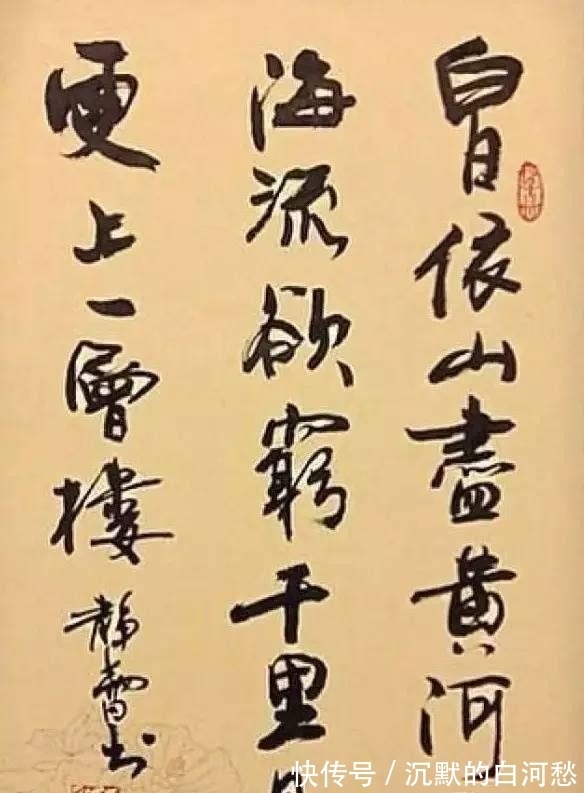 白日依山盡黄河
海流欲窮千里
更上一層樓
静書
快传号 / 沉默的白河愁